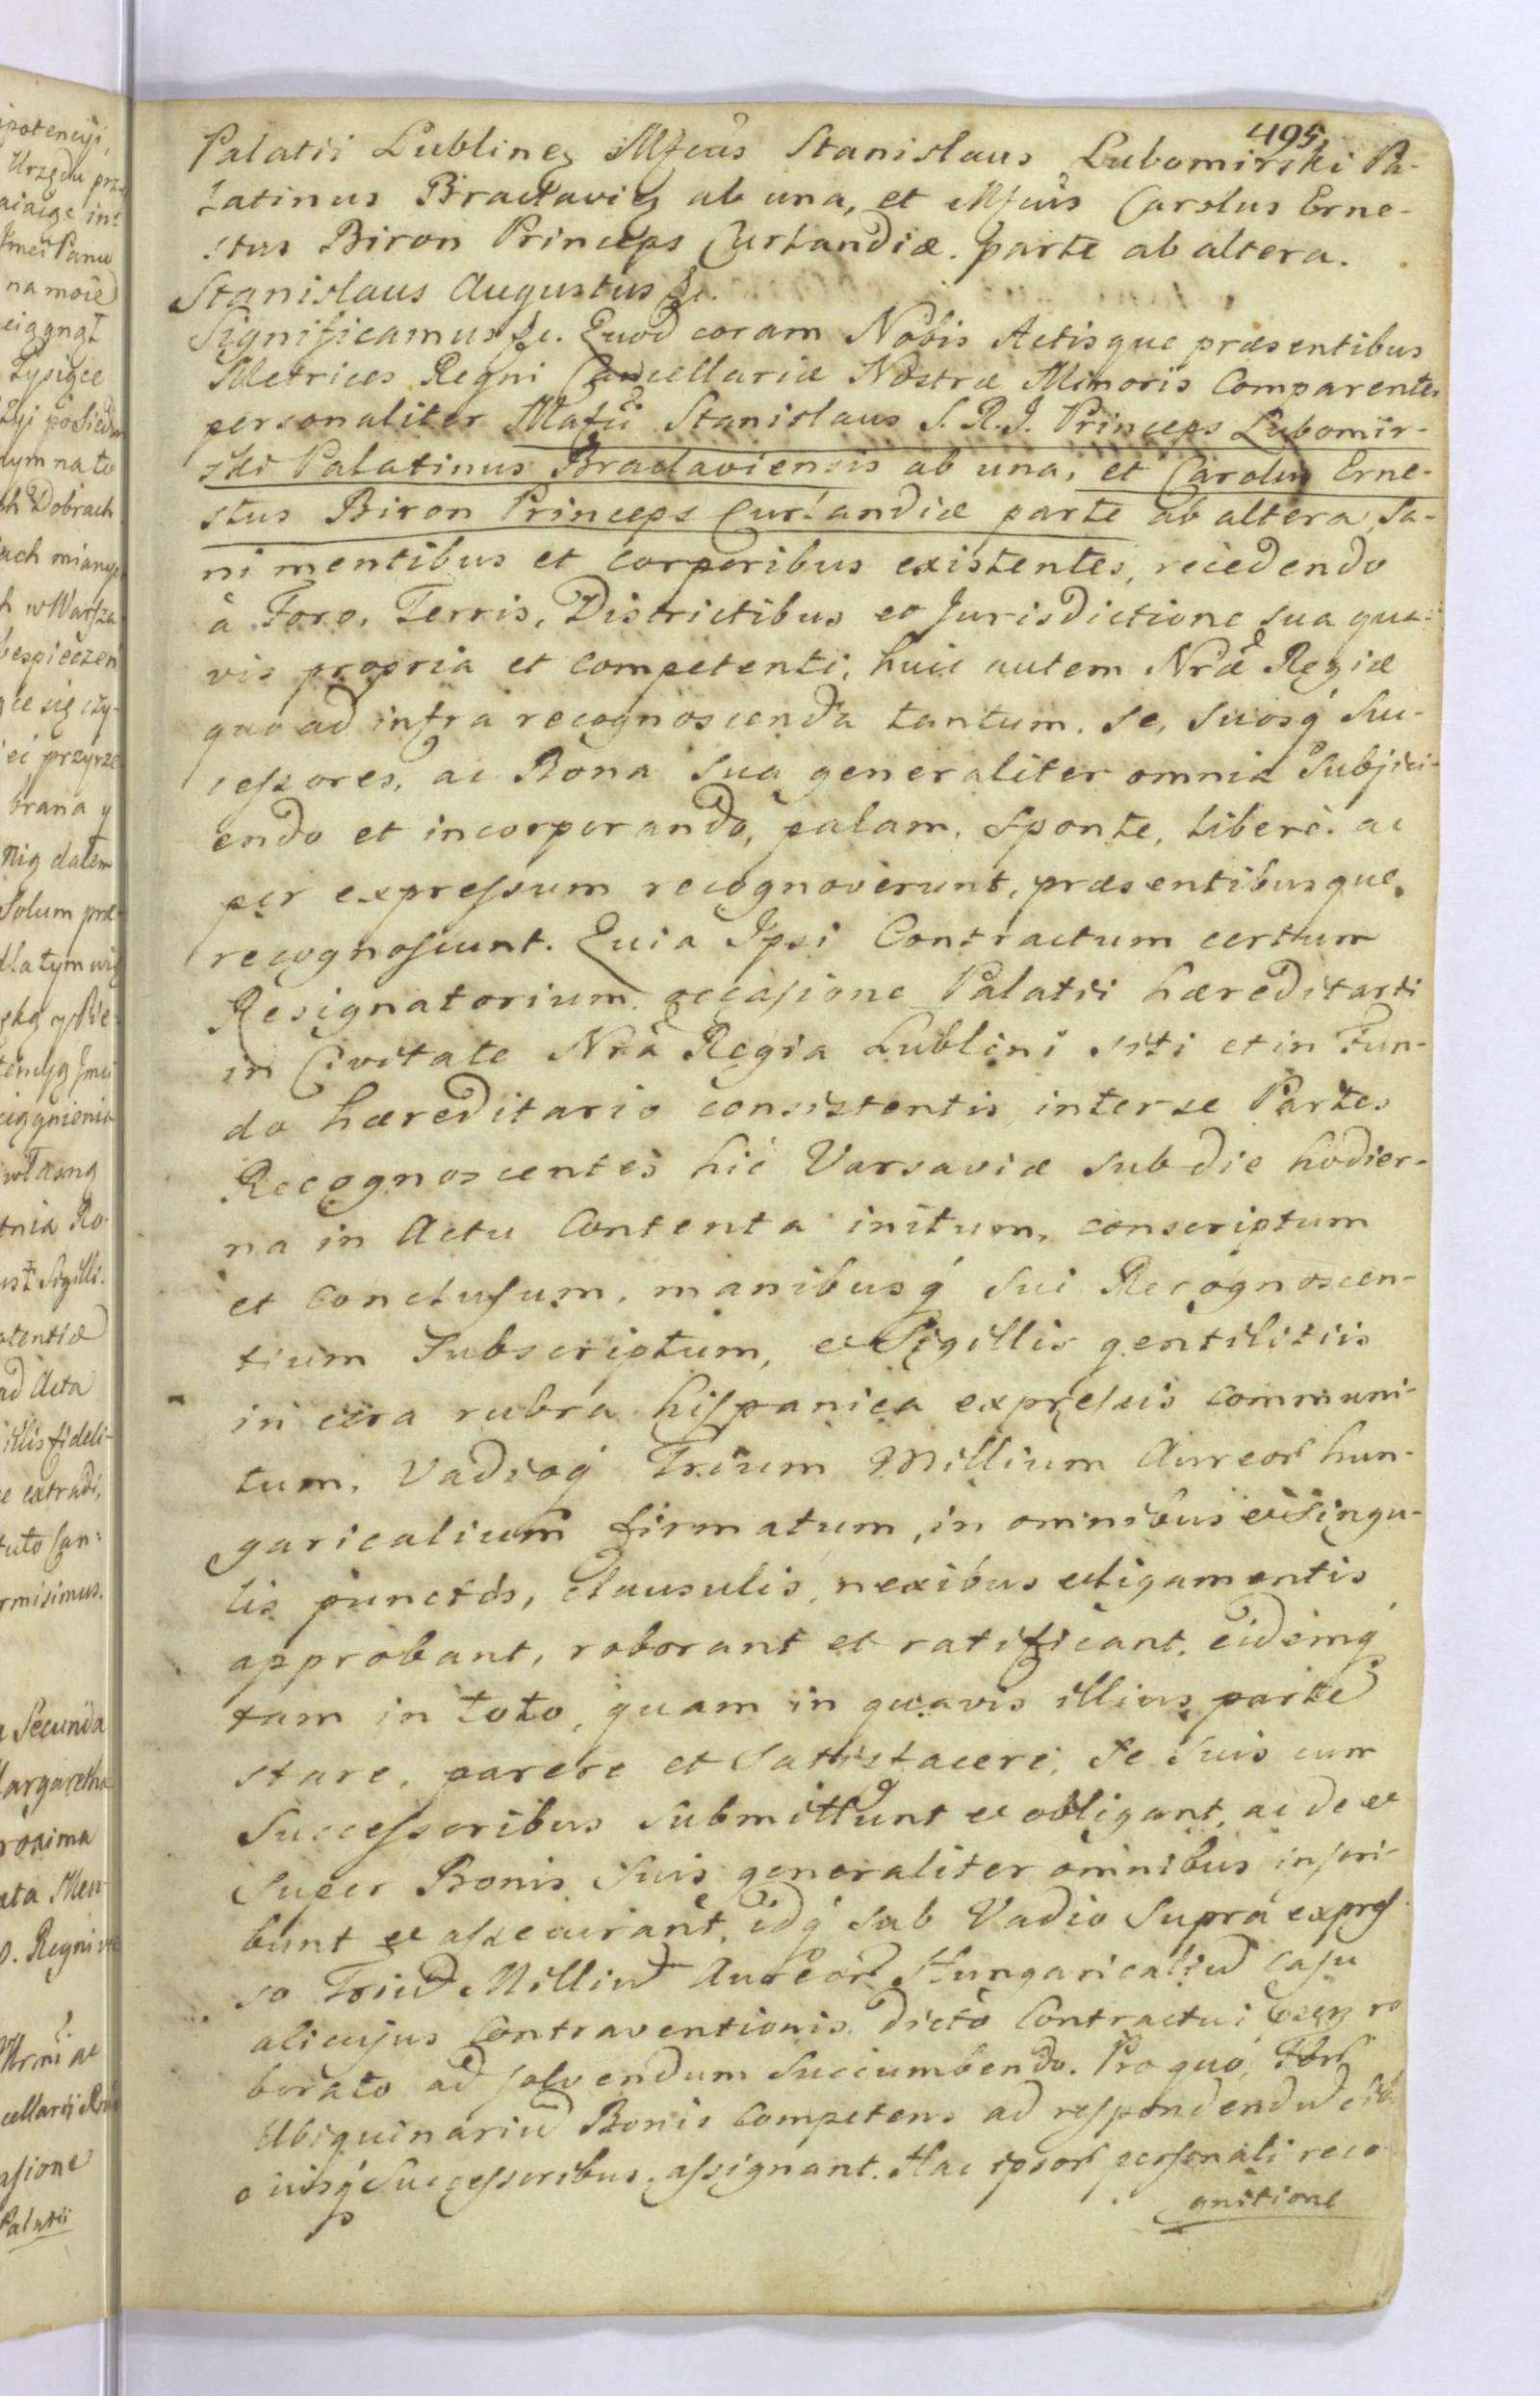 495.
Palatii Lublineń Mfcus Stanislaus Lubomirski Pa-
latinus Braclavień ab una, et Mfcus Carolus Erne-
stus Biron Princeps Curlandiæ. parte ab altera.
Stanislaus Augustus &c.
Significamus &c. Quod coram Nobis Actisque præsentibus
Metrices Regni Cancellariæ Nostræ Minoris Comparentes
personaliter Mafci Stanislaus S. R. J. Princeps Lubomir-
ski Palatinus Braclaviensis ab una, et Carolus Erne-
stus Biron Princeps Curlandiæ parte ab altera, Sa-
ni mentibus et Corporibus existentes, recedendo
à Foro, Terris, Districtibus et Jurisdictione sua qua-
vis propria et Competenti, huic autem Nræ Regiæ
quo ad infra recognoscenda tantum. se, suosq́ Suc-
cessores, ac Bona sua generaliter omnia Subjici-
endo et incorporando, palam, Sponte, liberè. ac
per expressum recognoverunt, præsentibusque
recognoscunt. Quia Ipsi Contractum certum
Resignatorium. occasione Palatii hæreditarii
in Civitate Nrâ Regia Lublini siti et in Fun-
do hæreditario consistentis inter se Partes
Recognoscentes hic Varsaviæ sub die hodier-
na in Actu Contenta initum, conscriptum
et Conclusum, manibusq́ Sui Recognoscen-
tium Subscriptum, et Sigillis gentilitiis
in cera rubra hispanica expressis communi-
tum. Vadioq́ Trium Millium Aureoŕ hun-
garicalium firmatum, in omnibus et singu-
lis punctis, clausulis, nexibus et ligamentis
approbant, roborant et ratificant. eidemq́
tam in toto, quam in quavis illius parte
stare, parere et Satisfacere, Se Suis cum
Successoribus Submittunt et obligant, ac de et
Super Bonis Suis generaliter omnibus inscri-
bunt et assecurant, idq́ sub Vadio Supra expres
so Triu͂ Milliu͂ Aureoŕ Hungaricaliu͂ casu
alicujus Contraventionis dicto Contractui ro
borato ad solvendum Succumbendo. Pro quo,
Ubiquinariu͂ Bonis Competens ad respondendu͂
Successoribus assignant. Hac ipsoŕ personali reco
gnitione